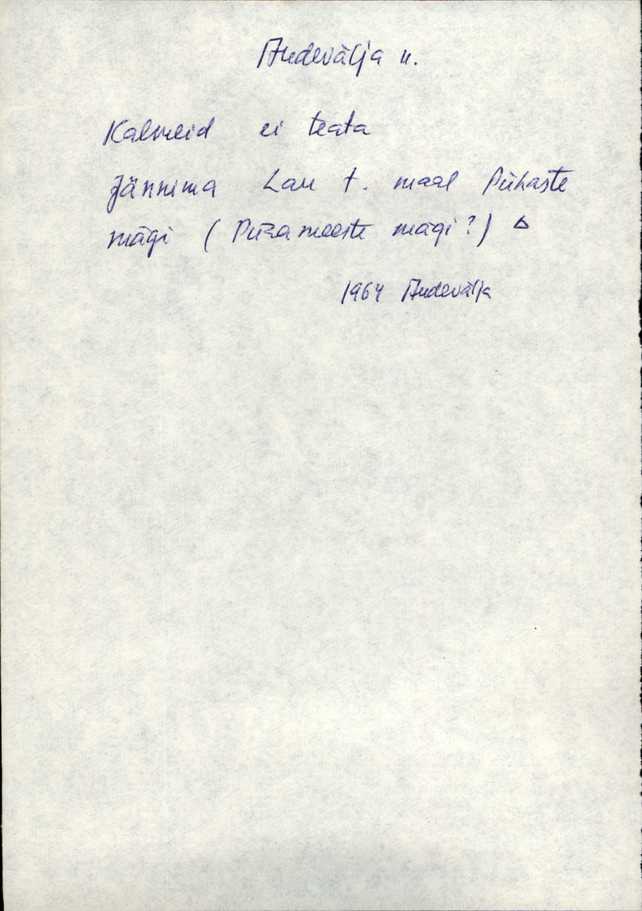 Audevälja k.
Kalmeid ei teata
Jännima Lau t. maal Pühaste
mägi (Püha meeste mägi?) Δ
1964 Audevälja